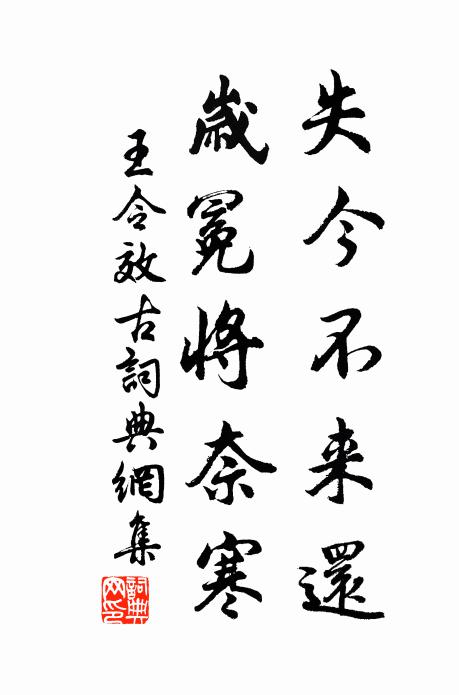 失今不来還
歲冕將奈寒
王令效古詞典網集
詞典网印